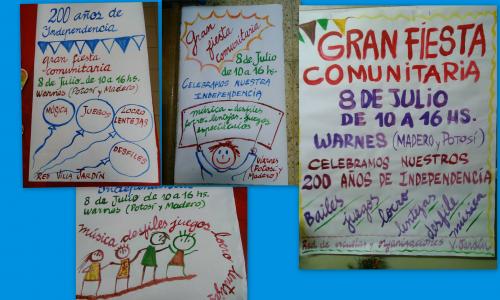 200 años de
Independencia
gran fiesta
comunitaria
8 de Julio de 10 a 16 hs.
Warnes (Potosí y Madero)
MÚSICA
JUEGOS
LOCRO
LENTEJAS
DESFILES
RED VILLA JARDÍN
Gran
fiesta
comunitaria
8 de Julio
de 10 a 16 hs.
CELEBRAMOS NUESTRA
INDEPENDENCIA
música - desfiles
locro - lentejas - juegos
espectáculos
WARNES
(POTOSÍ Y
MADERO)
Independencia
8 de Julio de 10 a 16 hs.
Warnes (Potosí y Madero)
música desfiles juegos locro
GRAN FIESTA
COMUNITARIA
8 DE JULIO
DE 10 A 16 HS.
WARNES (MADERO, POTOSÍ)
CELEBRAMOS NUESTROS
200 AÑOS DE INDEPENDENCIA
Bailes juegos locro lentejas desfile música
Red de escuelas y organizaciones V. Jardín